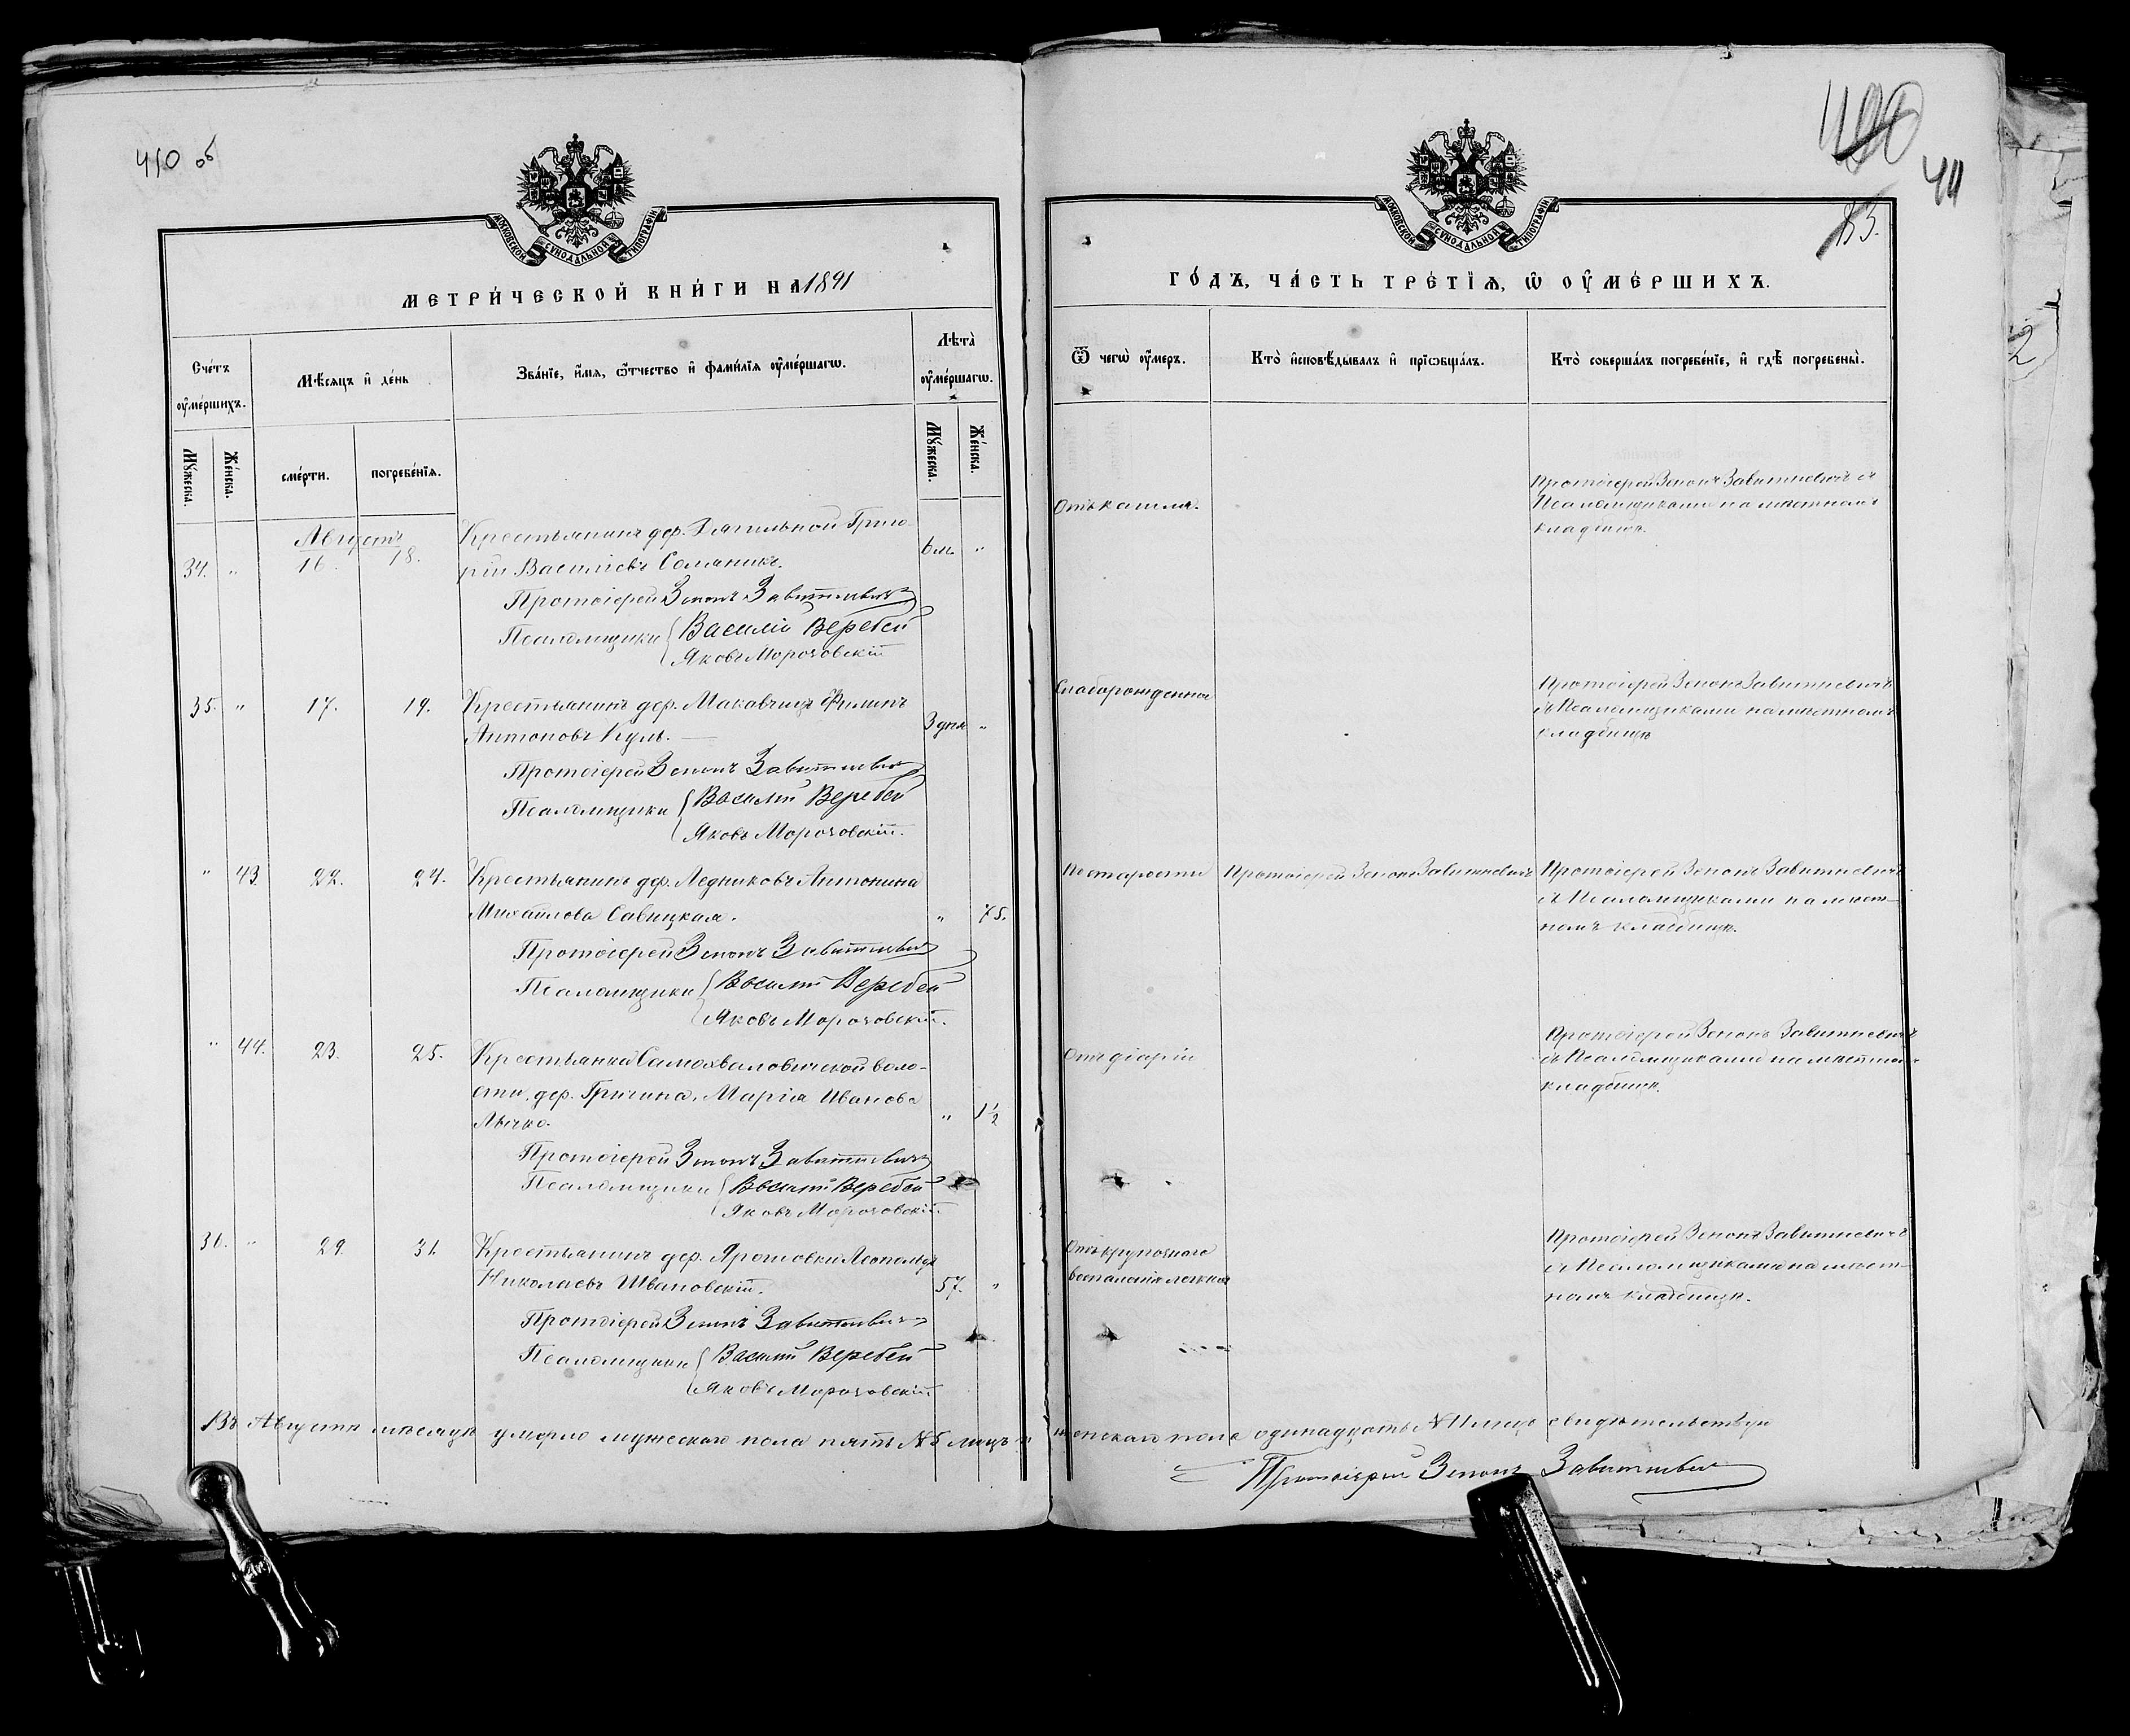 410 об
МОСКОВСКОЙ СУНОДАЛЬНОЙ ТИПОГРАФІИ
МЕТРИ́ЧЕСКОЙ КНИ́ГИ НА 1891
Сче́тъ оу҆ме́ршихъ.
Мѣ́сяцъ и҆ де́нь
Зва́нїе, и҆́мя, ѻ҆́тчество и҆ фами́лїя оу҆ме́ршагѡ.
Лѣта̀ оу҆ме́ршагѡ.
Мꙋ́жеска.
Же́нска.
сме́рти.
погребе́нїѧ.
Мꙋ́жеска.
Же́нска.
Августъ
34. " 16. 18. Крестьянинъ дер. Григо-
рій Васильевъ 6 м. "
Протоіерей Зенонъ Завитневичъ
Псаломщики Василій Веребей
Яковъ Морочовскій
35. " 17. 19. Крестьянинъ дер. Макавчицъ Филипъ
Антоновъ Куль. 3 дня "
Протоіерей Зенонъ Завитневичъ
Псаломщики Василій Веребей
Яковъ Морочовскій.
" 43. 22. 24. Крестьянинъ дер. Ледниковъ Антонина
Михайлова Савицкая. " 75.
Протоіерей Зенонъ Завитневичъ
Псаломщики Василій Веребей
Яковъ Морочовскій.
" 44. 23. 25. Крестьянка Самохваловичской воло-
сти, дер. Гричина, Марія Иванова
Лычко. " 1½
Протоіерей Зенонъ Завитневичъ
Псаломщики Василій Веребей
Яковъ Морочовскій
36. " 29. 31. Крестьянинъ дер. Ярошовки Леопольдъ
Николаевъ Ивановскій. 57. "
Протоіерей Зенонъ Завитневичъ
Псаломщики Василій Веребей
Яковъ Морочовскій
Въ Августѣ мѣсяцѣ умерло мужескаго пола пять № 5 лицъ и
83.
МОСКОВСКОЙ СУНОДАЛЬНОЙ ТИПОГРАФІИ
ГО́ДЪ, ЧА́СТЬ ТРЕ́ТЇѦ, Ѡ҆ ОУ҆МЕ́РШИХЪ.
Ѿ чегѡ̀ оу҆́меръ.
Кто̀ и҆сповѣ́дывалъ и҆ прїѡбща́лъ.
Кто̀ соверша́лъ погребе́нїе, и҆ гдѣ̀ погребены̀.
Отъ кашля.
Протоіерей Зенонъ Завитневичъ съ
Псаломщиками на мѣстномъ
кладбищѣ.
Слаборожденное
Протоіерей Зенонъ Завитневичъ
съ Псаломщиками на мѣстномъ
кладбищѣ
По старости
Протоіерей Зенонъ Завитневичъ
Протоіерей Зенонъ Завитневичъ
съ Псаломщиками на мѣст-
номъ кладбищѣ.
Отъ діаріи
Протоіерей Зенонъ Завитневичъ
съ Псаломщиками на мѣстномъ
кладбищѣ.
Отъ крупознаго
воспаленія легкихъ
Протоіерей Зенонъ Завитневичъ
съ Псаломщиками на мѣст-
номъ кладбищѣ.
женскаго пола одинадцать № 11 лицъ свидѣтельствую
Протоіерей Зенонъ Завитневичъ